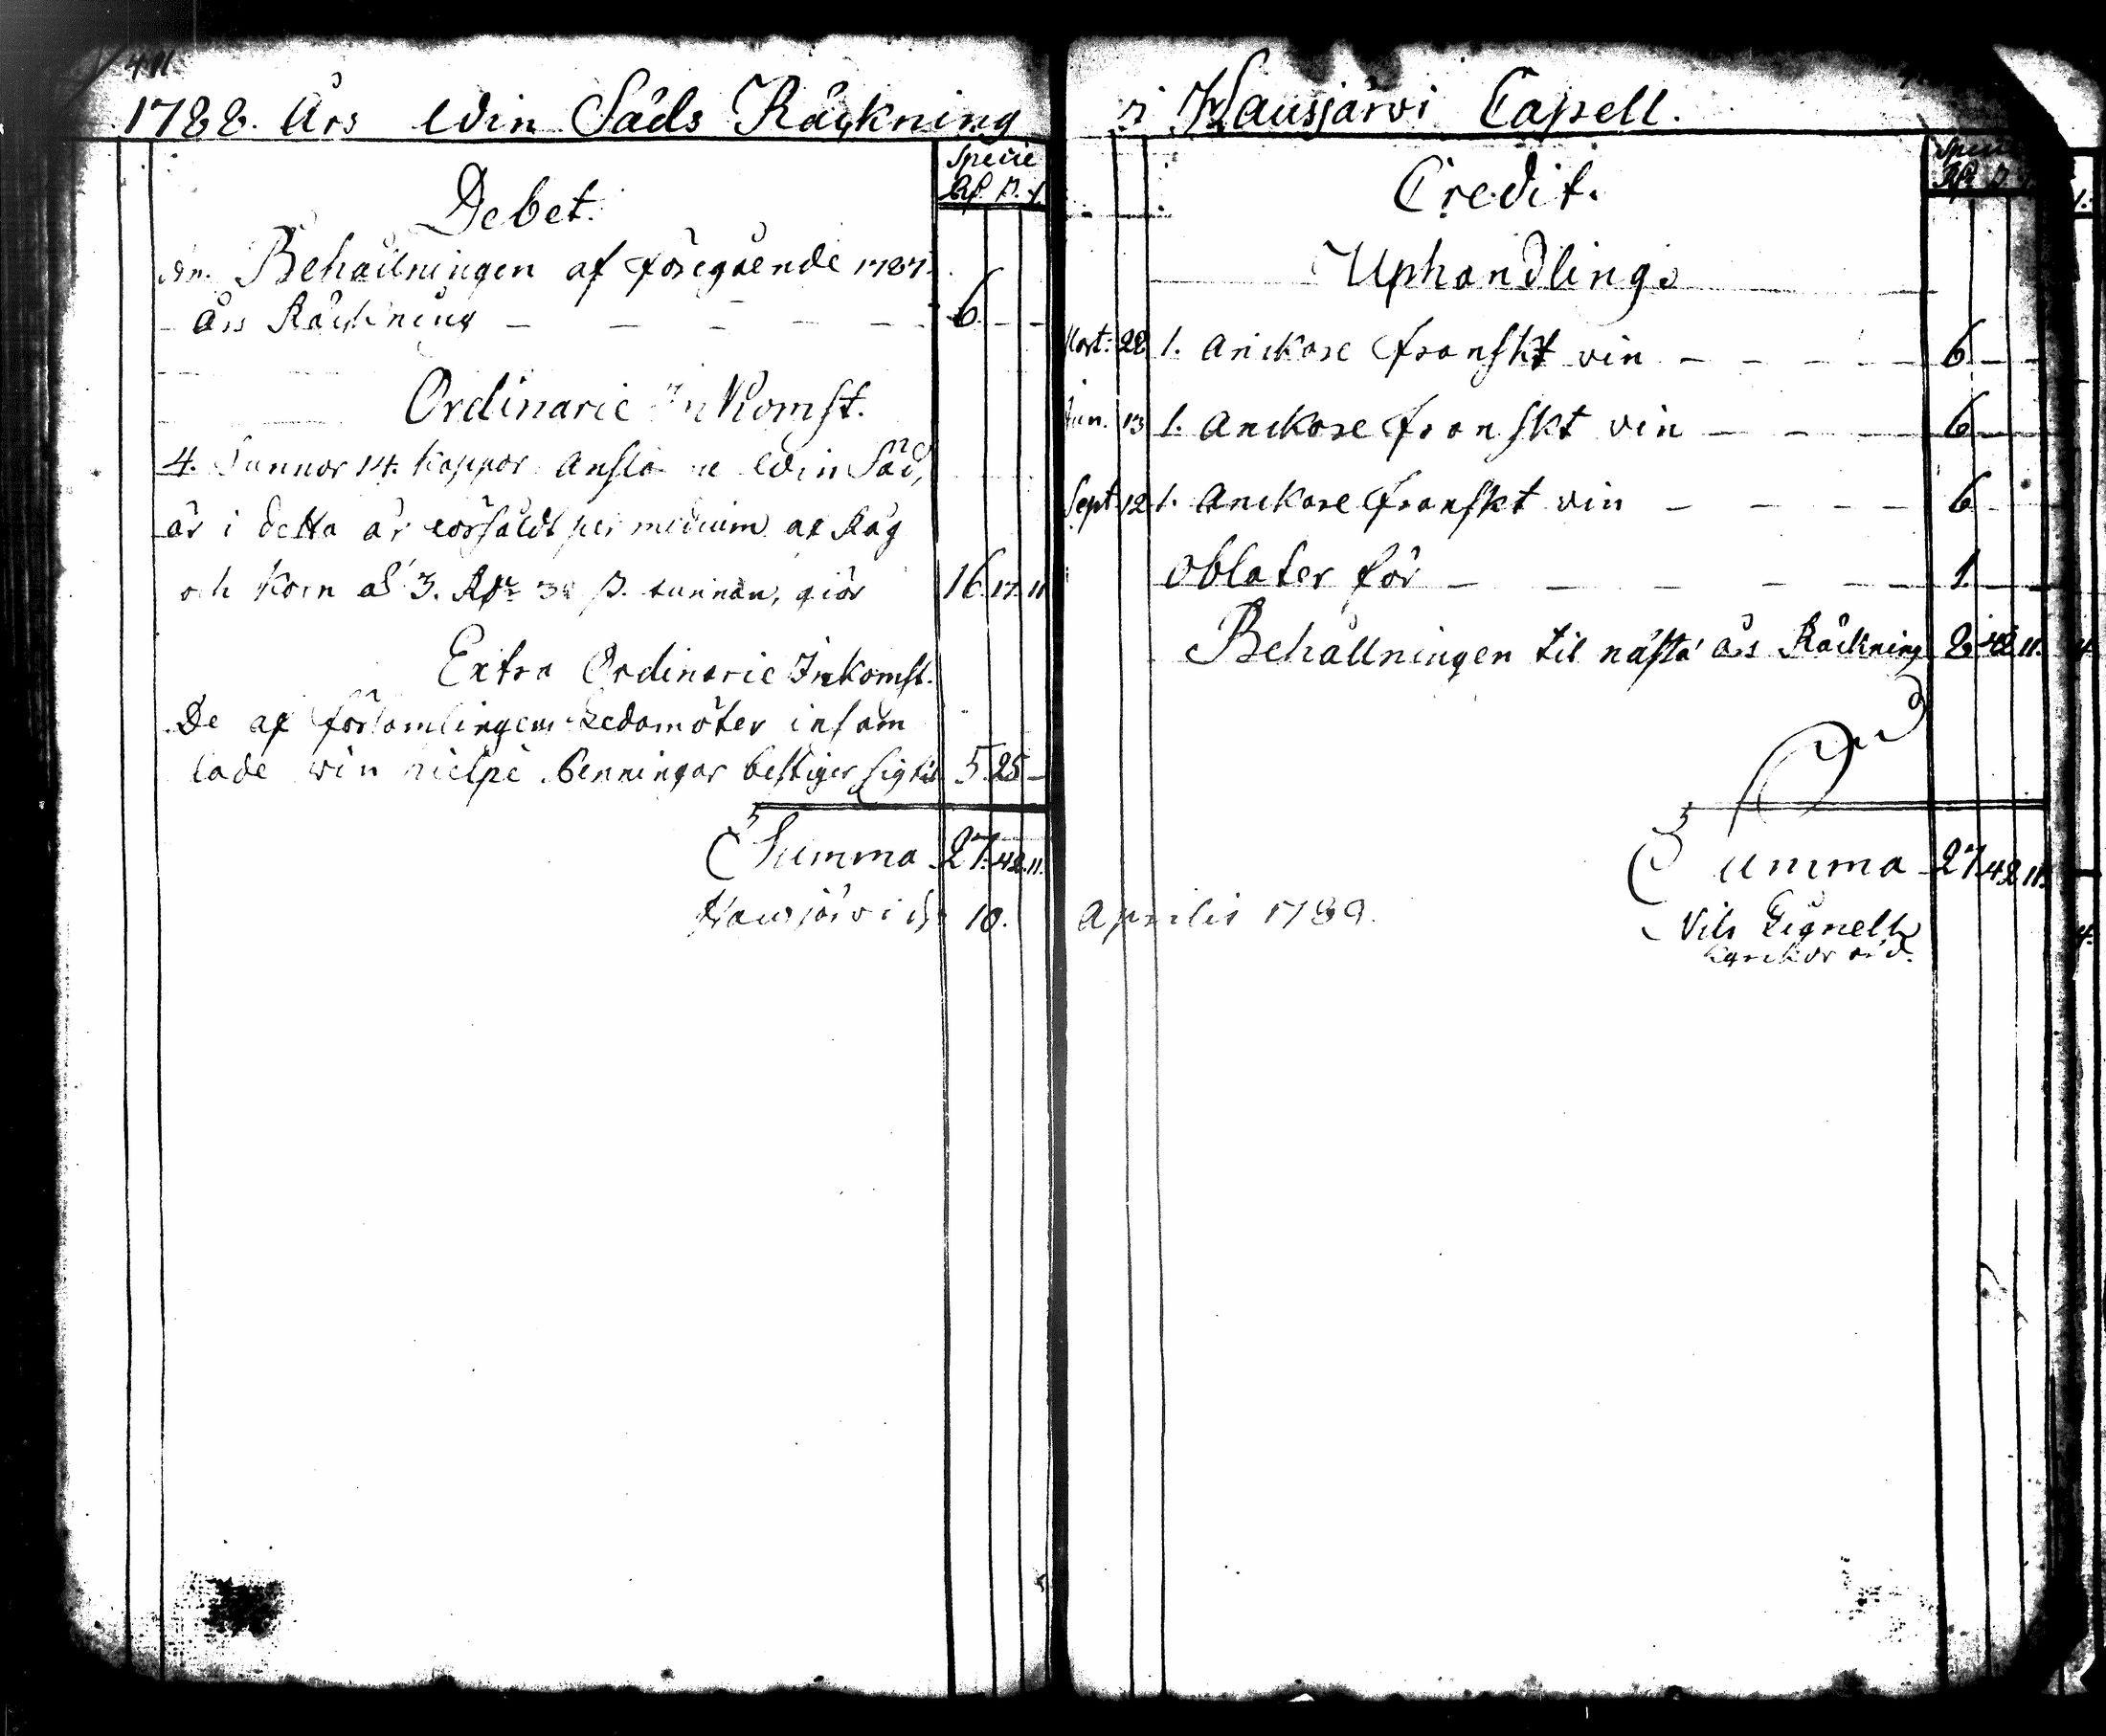 1788. Års Win Säds Räkning
Specie
Rf. ß. r.
Debet.
Behållningen af föregående 1787.
Års Räckning 6.
Ordinarie Inkomst.
4. Tunnor 14. kappor Anslagne Win Säd,
är i detta år försåldt per medium af Råg
och Korn a 3. Rdr ß. tunnan, giör 16. 17. 11.
Extra Ordinarie Inkomst.
De af församlingens Ledamöter insam
lade win hielps Penningar bestiger sig til 5. 25.
Summa 27. 42. 11.
Hausjärvi d. 10.
i Hausjärvi Capell.
Specie
Credit.
Uphandling
Mart: 28 1. Anckare franskt vin 6.
Jun. 13 1. Anckare franskt vin 6.
Sept. 12 1. Anckare franskt vin 6.
Oblater för 1.
Behållningen til nästa års Räckning 8. 42. 11.
Summa 27. 42. 11.
Aprilis 1789.
Nils Lignell